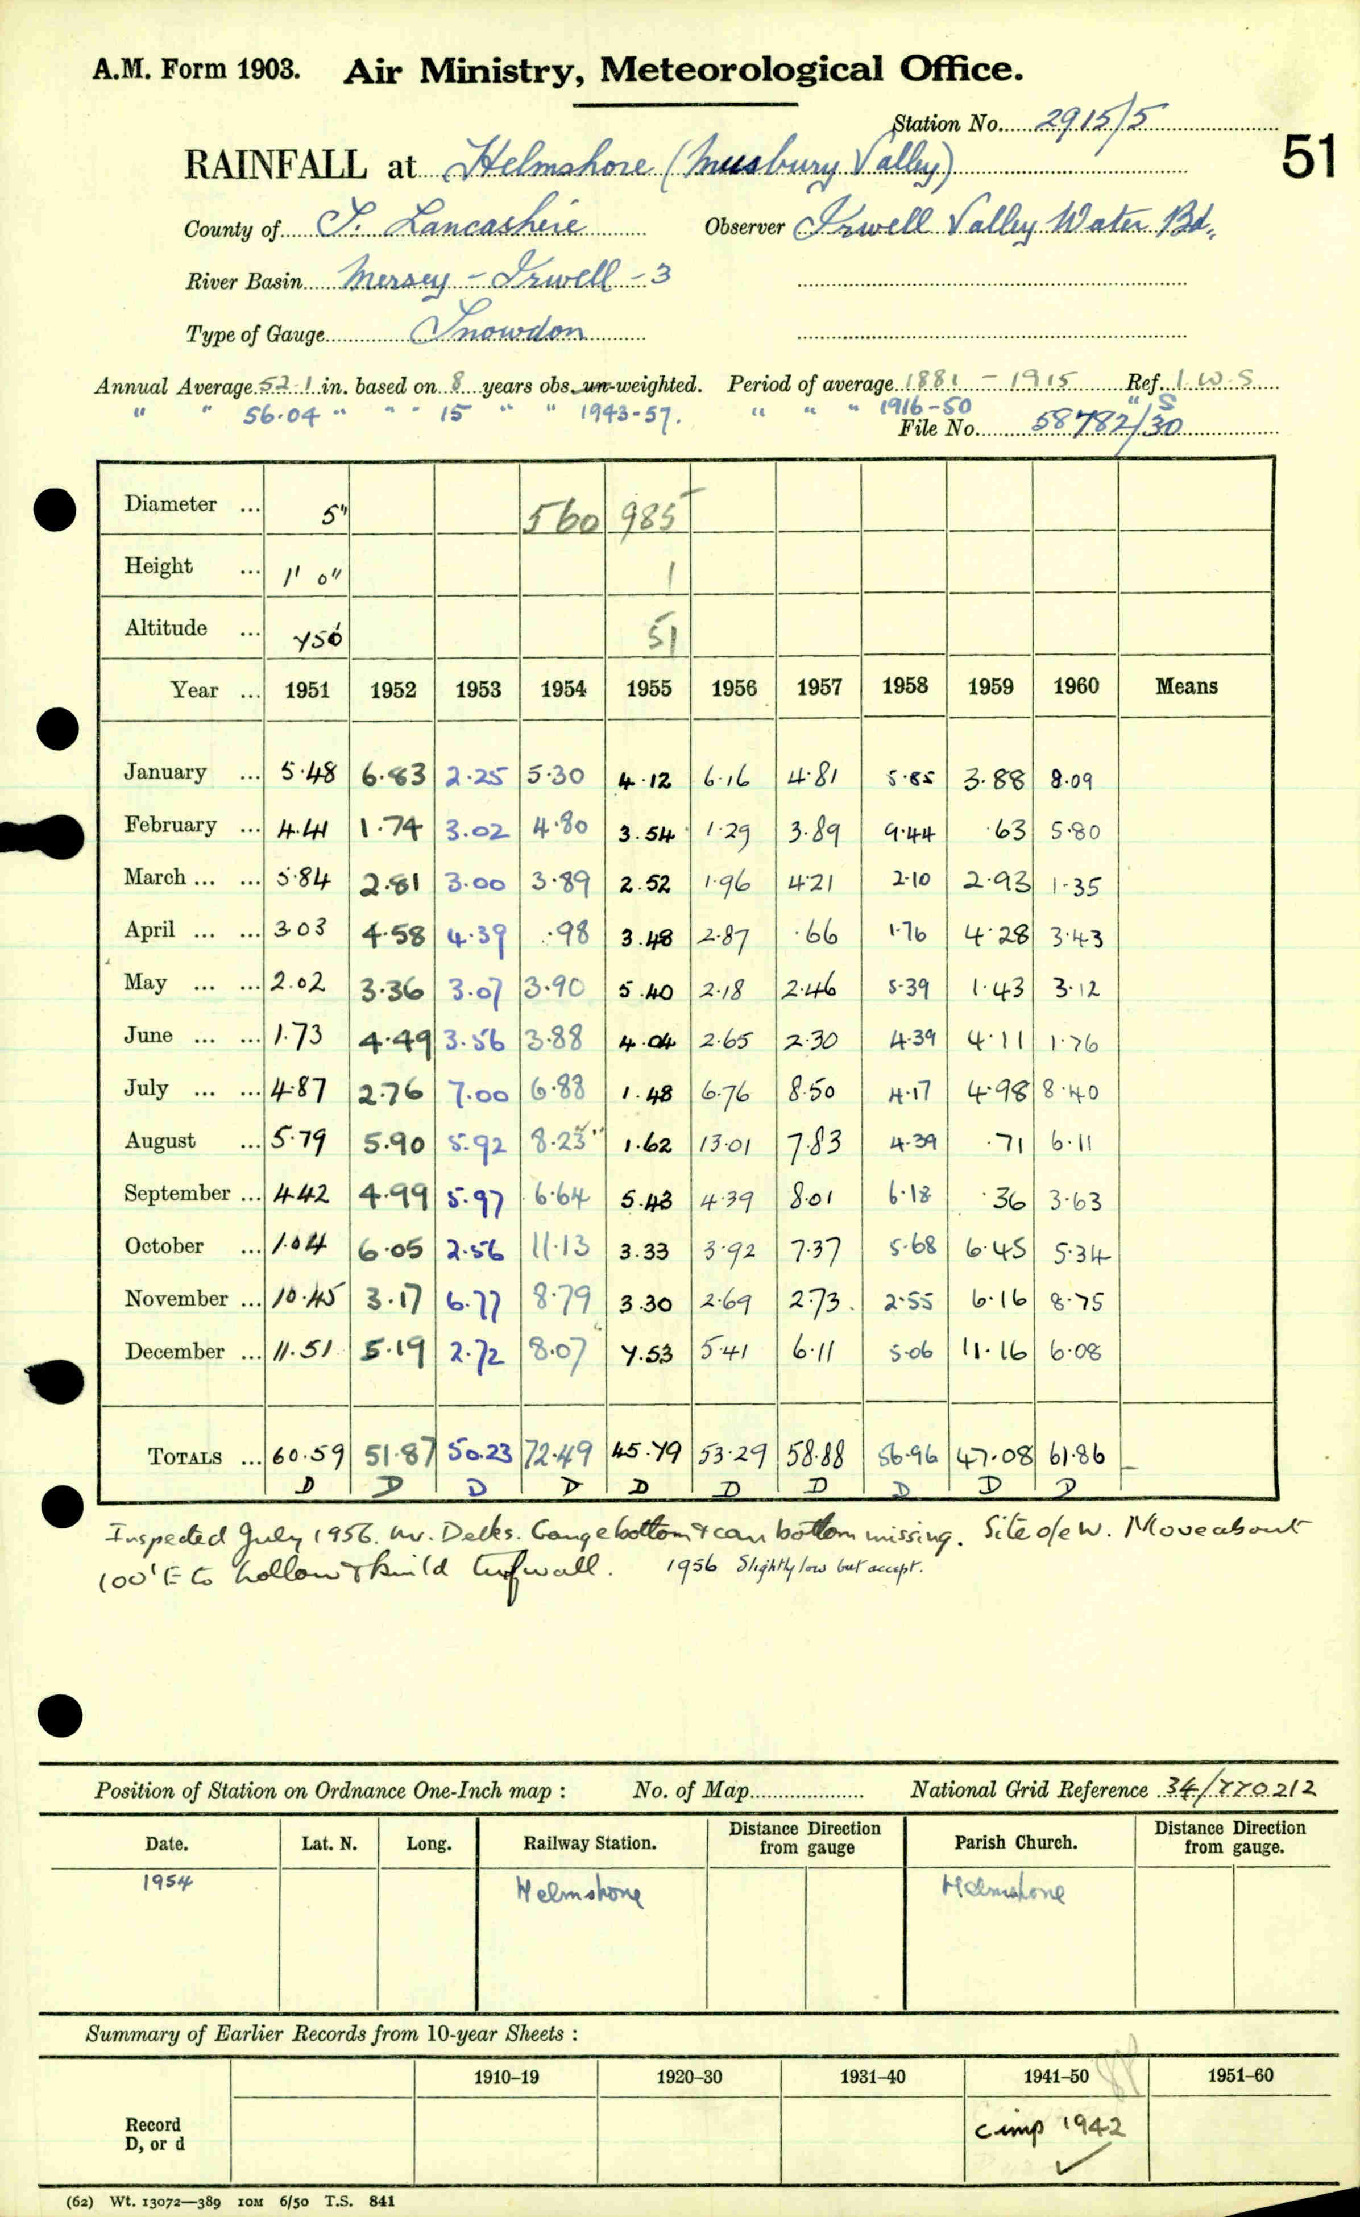 A.M. Form 1903. Air Ministry, Meteorological Office.
Station No. 2915/5
51
RAINFALL at Helmshore (Musbury Valley)
County of S. Lancashire Observer Irwell Valley Water Bd.
River Basin Mersey - Irwell - 3
Type of Gauge Snowdon
Annual Average 52.1 in. based on 8 years obs. un-weighted. Period of average 1881 - 1915 Ref. I.W.S
" " 56.04 " " " 15 " " 1943-57. " " " 1916-50 " S
File No. 58782/30
Diameter ... 5" 560 985
Height ... 1' 0" 1
Altitude ... 750 51
Year ... 1951 1952 1953 1954 1955 1956 1957 1958 1959 1960 Means
January ... 5.48 6.83 2.25 5.30 4.12 6.16 4.81 5.85 3.88 8.09
February ... 4.41 1.74 3.02 4.80 3.54 1.29 3.89 9.44 .63 5.80
March ... ... 5.84 2.81 3.00 3.89 2.52 1.96 4.21 2.10 2.93 1.35
April ... ... 3.03 4.58 4.39 .98 3.48 2.87 .66 1.76 4.28 3.43
May ... ... 2.02 3.36 3.07 3.90 5.40 2.18 2.46 5.39 1.43 3.12
June ... ... 1.73 4.49 3.56 3.88 4.04 2.65 2.30 4.39 4.11 1.76
July ... ... 4.87 2.76 7.00 6.88 1.48 6.76 8.50 4.17 4.98 8.40
August ... 5.79 5.90 5.92 8.23 1.62 13.01 7.83 4.39 .71 6.11
September ... 4.42 4.99 5.97 6.64 5.43 4.39 8.01 6.18 .36 3.63
October ... 1.04 6.05 2.56 11.13 3.33 3.92 7.37 5.68 6.45 5.34
November ... 10.45 3.17 6.77 8.79 3.30 2.69 2.73 2.55 6.16 8.75
December ... 11.51 5.19 2.72 8.07 7.53 5.41 6.11 5.06 11.16 6.08
TOTALS ... 60.59 51.87 50.23 72.49 45.79 53.29 58.88 56.96 47.08 61.86
D D D D D D D D D D
Inspected July 1956. Mr. Delks. Gauge bottom & can bottom missing. Site o/e W. Move about
100' E to hollow & build turf wall. 1956 Slightly low but accept.
Position of Station on Ordnance One-Inch map : No. of Map National Grid Reference 34/770212
Date. Lat. N. Long. Railway Station. Distance Direction from gauge Parish Church. Distance Direction from gauge.
1954 Helmshore Helmshore
Summary of Earlier Records from 10-year Sheets :
1910-19 1920-30 1931-40 1941-50 1951-60
Record D, or d c imp 1942
(62) Wt. 13072—389 10M 6/50 T.S. 841